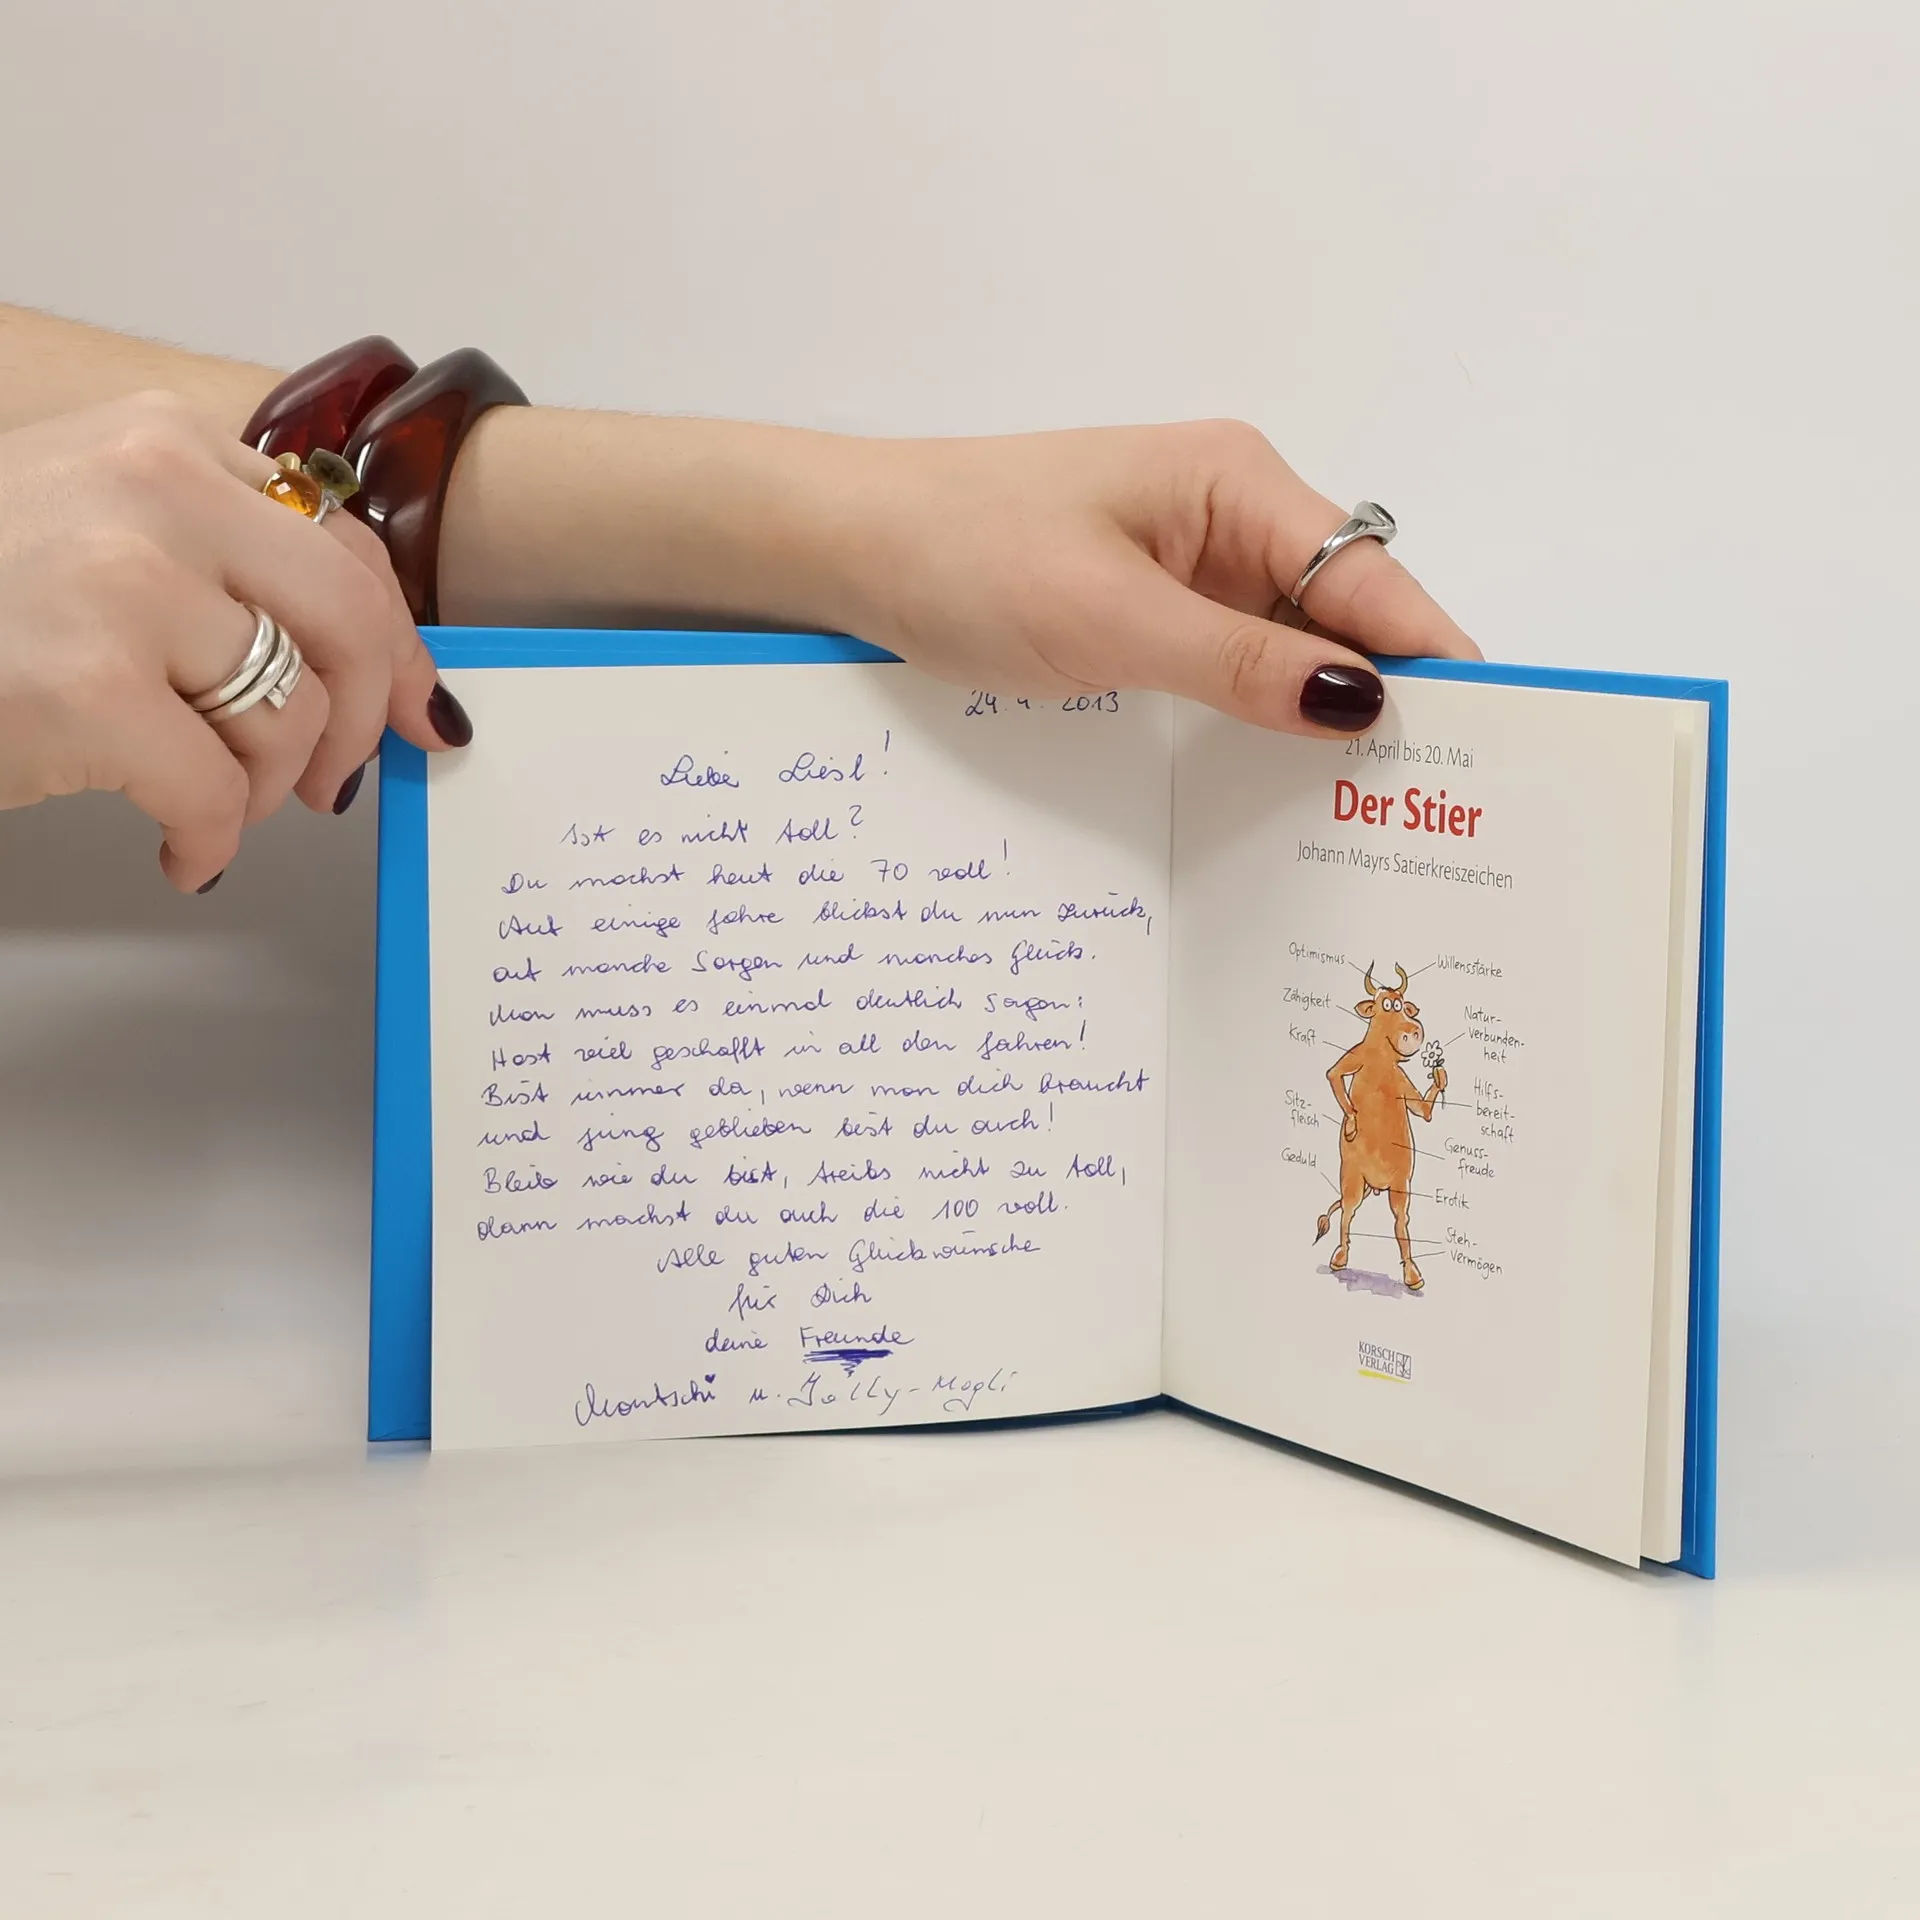 24. 4. 2013
Liebe Liesl!
Ist es nicht toll?
Du machst heut die 70 voll!
Auf einige Jahre blickst du nun zurück,
auf manche Sorgen und manches Glück.
Man muss es einmal deutlich sagen:
Hast viel geschafft in all den Jahren!
Bist immer da, wenn man dich braucht
und jung geblieben bist du auch!
Bleib wie du bist, treibs nicht zu toll,
dann machst du auch die 100 voll.
Alle guten Glückwünsche
für Dich
deine Freunde
u. Jolly-Mogli
21. April bis 20. Mai
Der Stier
Johann Mayrs Satierkreiszeichen
Optimismus
Willensstärke
Zähigkeit
Kraft
Natur-
verbunden-
heit
Sitz-
fleisch
Hilfs-
bereit-
schaft
Geduld
Genuss-
freude
Erotik
Steh-
vermögen
KORSCH
VERLAG